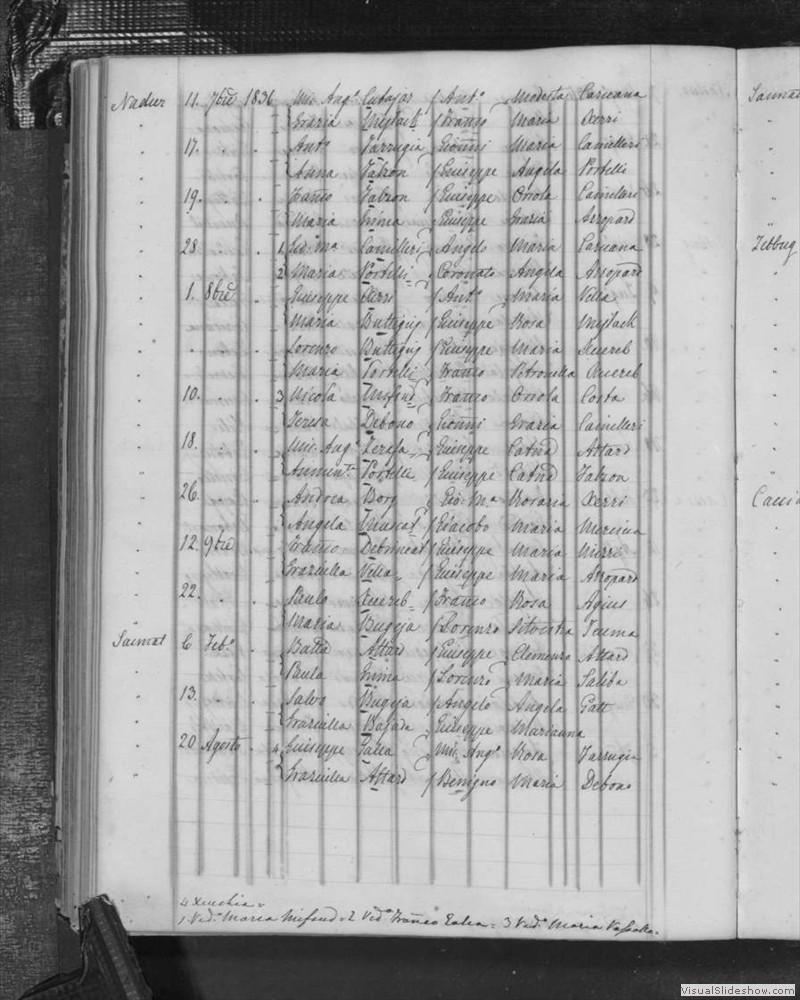 Nadur 11. 7bre 1836 Mic. Angº Cutajar f Antº Modesta Caruana Sannat
Grazia Mejlack f Franco Maria Xerri
17. Antº Farrugia Gionni Maria Camilleri
Anna Falzon f Giuseppe Angela Portelli
19. Franco Falzon f Giuseppe Orsola Camilleri
Maria Grima Giuseppe Grazia
28 1. Gio: Mª Camilleri Angelo Maria Caruana Zebbug
2 Maria Portelli Coronato Angela
1. 8bre Giuseppe Xerri f Antº Maria Vella
Maria Buttigieg f Giuseppe Rosa Mejlack
Lorenzo Buttigieg f Giuseppe Maria Xuereb
Maria Portelli f Franco Petronella Xuereb
10. 3 Nicola Mifsud f Franco Orsola Costa
Teresa Debono Gionni Grazia Camilleri
18. Mic. Angº f Giuseppe Catnd Attard
Portelli f Giuseppe Catnd Falzon
26. Andrea Borg Gio: Mª Rosaria Xerri
Angela Muscat f Giacobo Maria
12. 9bre Franco f Giuseppe Maria
Graziella Vella f Giuseppe Maria
22. Paulo Xuereb f Franco Rosa Agius
Maria Bugeja f Lorenzo Silvestra Teuma
Sannat 6 Febº Batta Attard f Giuseppe Clemenza Attard
Paula Grima f Lorenzo Maria Saliba
13. Salvo Bugeja f Angelo Angela Gatt
Graziella Bajada f Giuseppe Marianna
20 Agosto 4 Giuseppe Galea Mic. Angº Rosa Farrugia
Graziella Attard f Benigno Maria Debono
4 Xeuchia
1. Vedº Maria Mifsud = 2 Vedª Franco Galea = 3 Vedº Maria Vassallo
VisualSlideshow.com